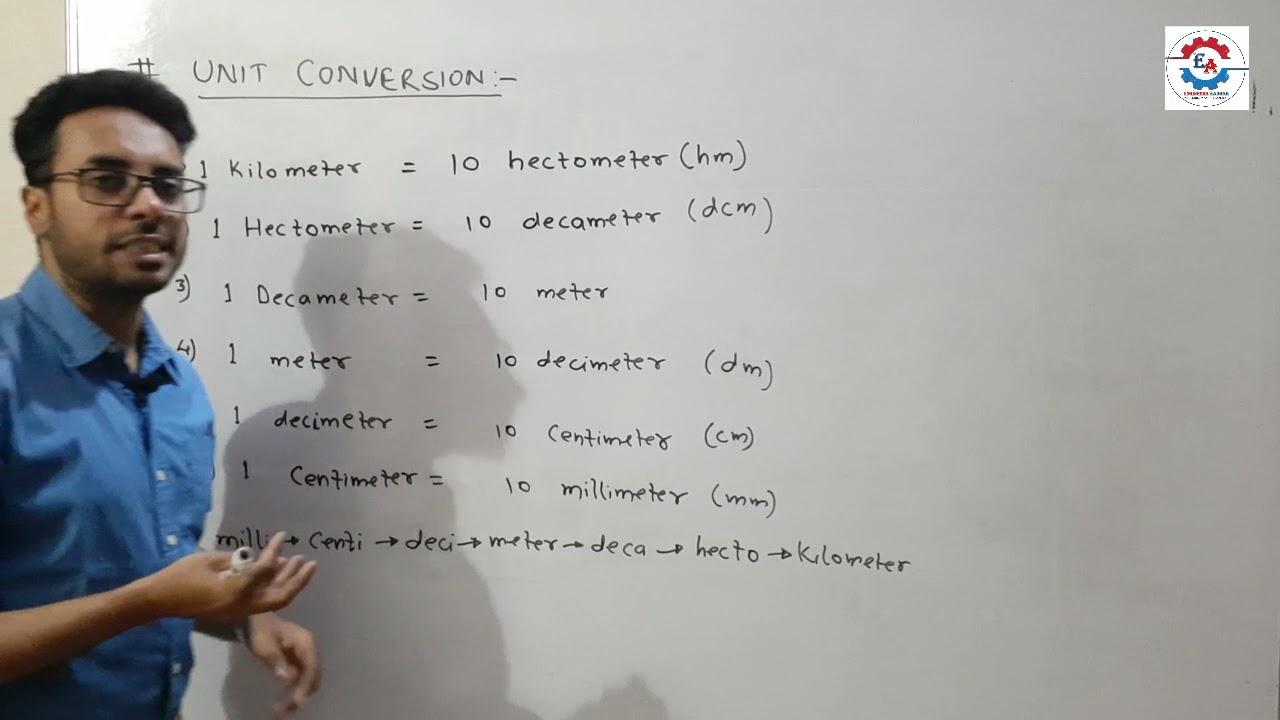 # UNIT CONVERSION:-
1 Kilometer = 10 hectometer (hm)
1 Hectometer = 10 decameter (dcm)
3) 1 Decameter = 10 meter
4) 1 meter = 10 decimeter (dm)
1 decimeter = 10 centimeter (cm)
) 1 Centimeter = 10 millimeter (mm)
milli → Centi → deci → meter → deca → hecto → Kilometer
EA